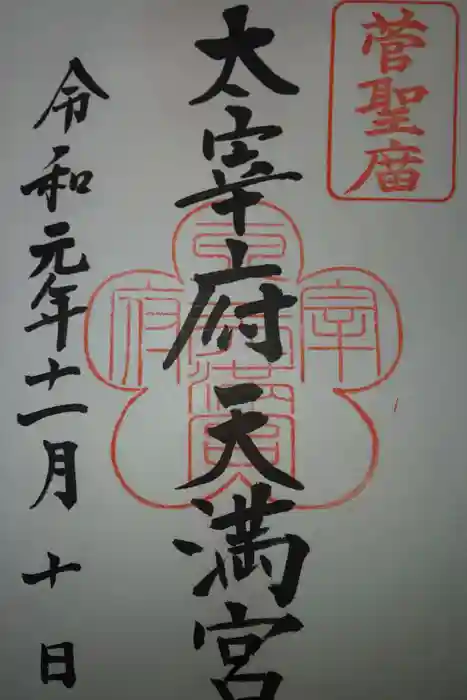 菅聖庿
太宰府天満宮
令和元年十一月十日